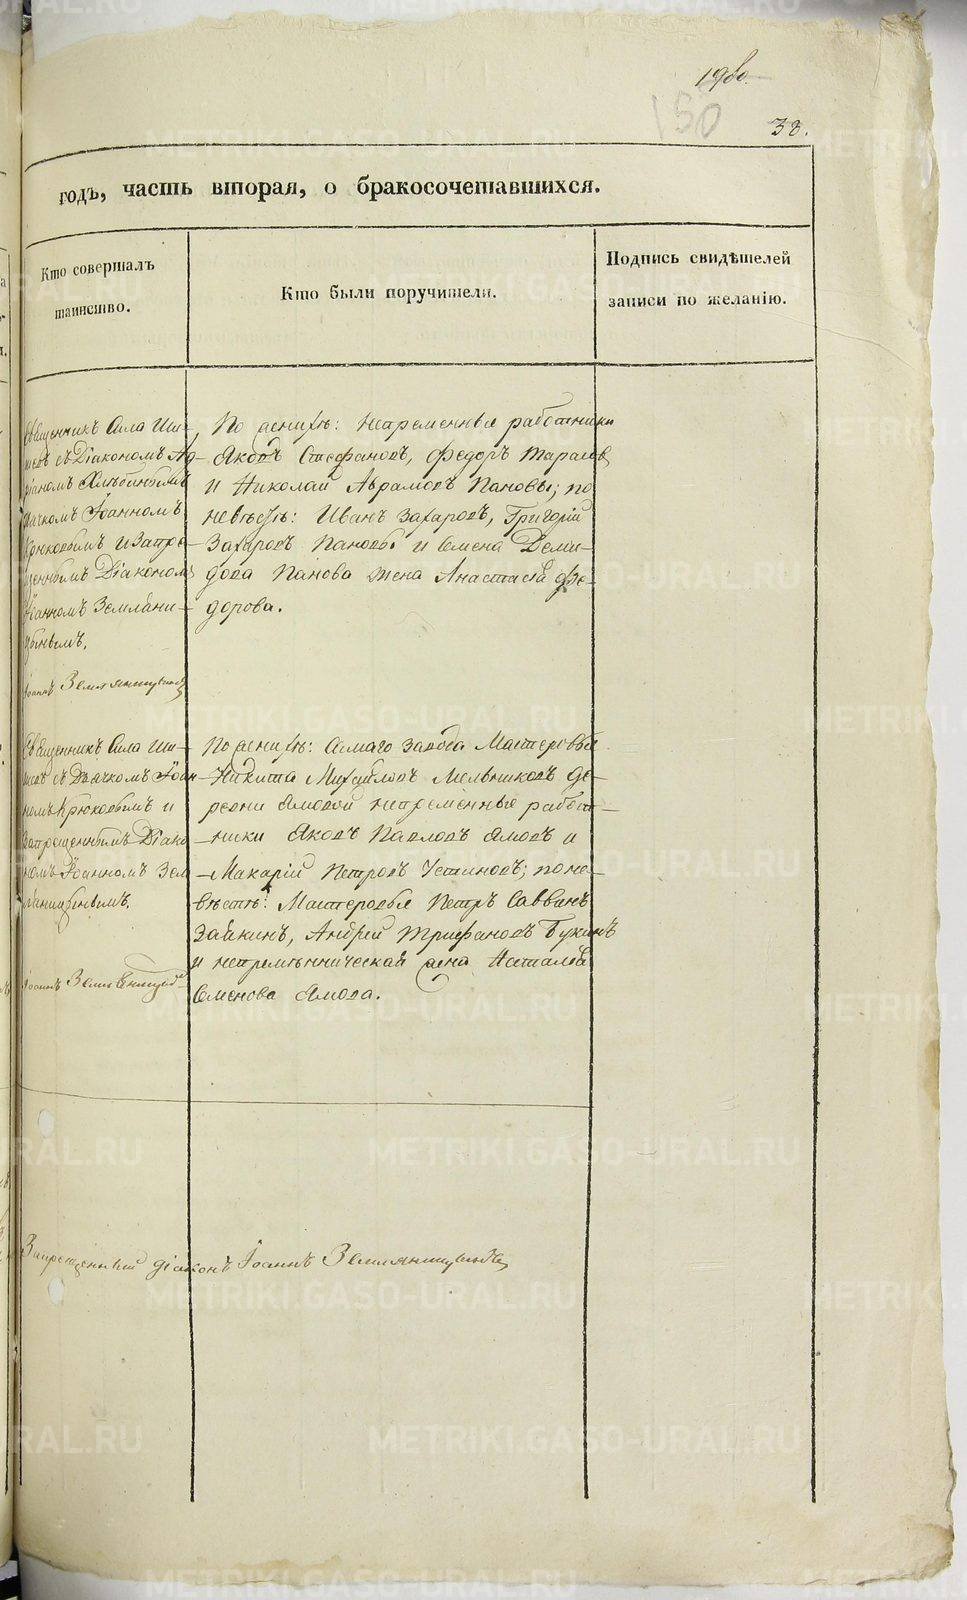 150
38.
годъ, часть вторая, о бракосочетавшихся.
Кто совершалъ
таинство.
Кто были поручители.
Подпись свидѣтелей
записи по желанію.
Священникъ Сила Ши-
шевъ съ Діакономъ Ад-
ріаномъ Хлѣбинымъ
дьячкомъ Іоанномъ
Крюковымъ и Запре-
щеннымъ Діакономъ
Іоанномъ Земляни-
цынымъ.
Іоаннъ Земляницынъ
По женихѣ: непременные работники
Яковъ Стефановъ, Федоръ Тарасовъ
и Николай Аврамовъ Пановы; по
невѣстѣ: Иванъ Захаровъ, Григорій
Захаровъ Пановы и Семена Деми-
дова Панова жена Анастасія Фе-
дорова.
Священникъ Сила Ши-
шевъ съ Дьячкомъ Іоан-
номъ Крюковымъ и
Запрещеннымъ Діако-
номъ Іоанномъ Зем-
ляницынымъ.
Іоаннъ Земляницынъ
По женихѣ: Симаго завода Мастеровые
Никита Михайловъ Мельниковъ де-
ревни Ямовой непременные работ-
ники Яковъ Павловъ Ямовъ и
Макарій Петровъ Устиновъ; по не-
вѣстѣ: Мастеровые Петръ Саввинъ
Зайкинъ, Андрей Трифановъ Букинъ
и непремѣнническая жена Наталья
Семенова Ямова.
Запрещенный діаконъ Іоаннъ Земляницынъ
METRIKI.GASO-URAL.RU